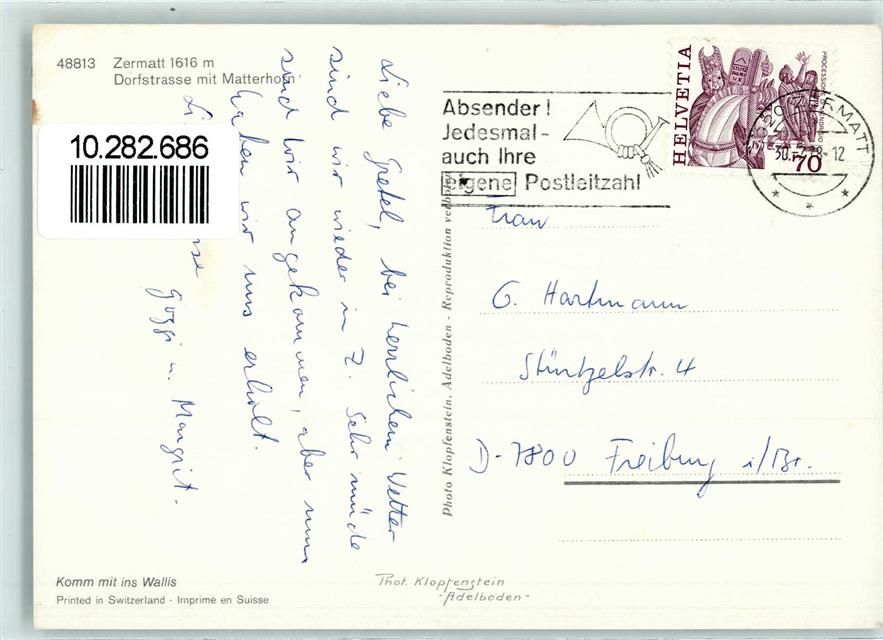 48813 Zermatt 1616 m
Dorfstrasse mit Matterhorn
10.282.686
Liebe Gretel, bei herrlichem Wetter
sind wir wieder in Z. Sehr müde
sind wir angekommen, aber nun
haben wir uns erholt.
Goggi u. Margrit.
Absender!
Jedesmal-
auch Ihre
eigene Postleitzahl
HELVETIA
70
ZERMATT
Frau
G. Hartmann
Stürtzelstr. 4
D-7800 Freiburg i/Br.
Photo Klopfenstein, Adelboden - Reproduktion verboten
Komm mit ins Wallis
Printed in Switzerland - Imprimé en Suisse
Phot. Klopfenstein
-Adelboden-